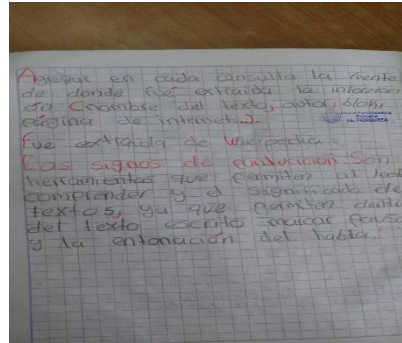 Agregar en cada consulta la fuente
de donde fue extraida la informacion
(nombre del texto, autor, blok,
página de internet.).
Fue extraida de Wikipedia
Los signos de puntuación Son
herramientas que permiten al lect
comprender y el significado de
textos, ya que permiten dentro
del texto escrito marcar pausa
y la entonación del habla.